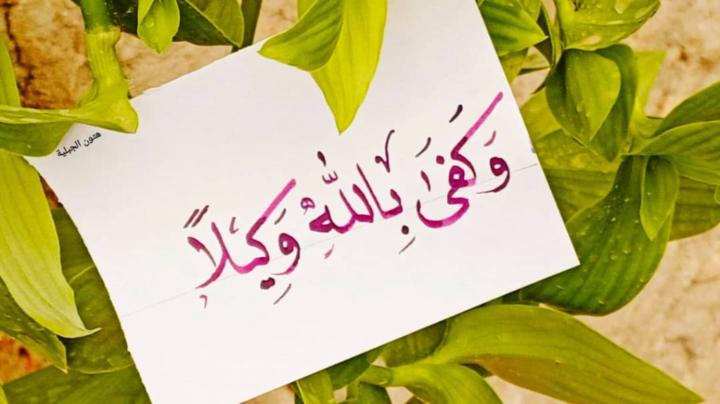 هتون الجبلية
وَكَفَىٰ بِاللَّهِ وَكِيلًا